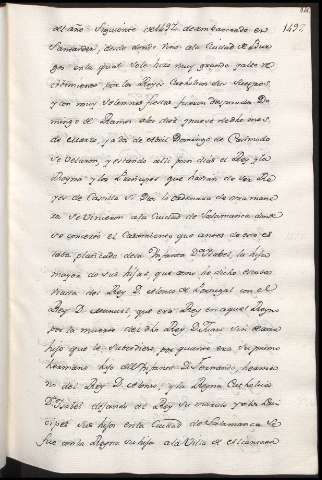 1497
del año Siguiente de 1497 desembarcada en
Santander, desde donde vino a la Ciudad de Bur
gos en la qual se le hizo muy grande y alto re
cibimiento por los Reyes Catholicos sus Suegros,
y con muy solemnes fiestas fueron desposados Do
mingo de Ramos a los diez y nueve de dicho mes,
de Marzo, y a dos de Abril Domingo de Casimodo
se velaron, y estando alli pocos dias el Rey y la
Reyna y los Principes que havian de ser Re
yes de Castilla si Dios lo ordenara de otra mane
ra se vinieron a la Ciudad de Salamanca donde
se concertó el Casamiento que antes de ora es
taba platicado de la Infanta Dª Isabel, la hija
mayor de sus hijas, que como he dicho estaba
Viuda del Rey D. Alonso de Portugal con el
Rey D. Manuel, que era Rey en aquel Reyno
por la muerte del dho Rey D. Juan sin dexar
hijo que le subcediese, por quanto era su primo
hermano hijo del Infante D. Fernando, herma
no del Rey D. Alonso; y la Reyna Catholica
Dª Isabel dejando al Rey su marido y a los Prin
cipes sus hijos en la Ciudad de Salamanca se
fue con la Reyna su hija a la Villa de Alcantara